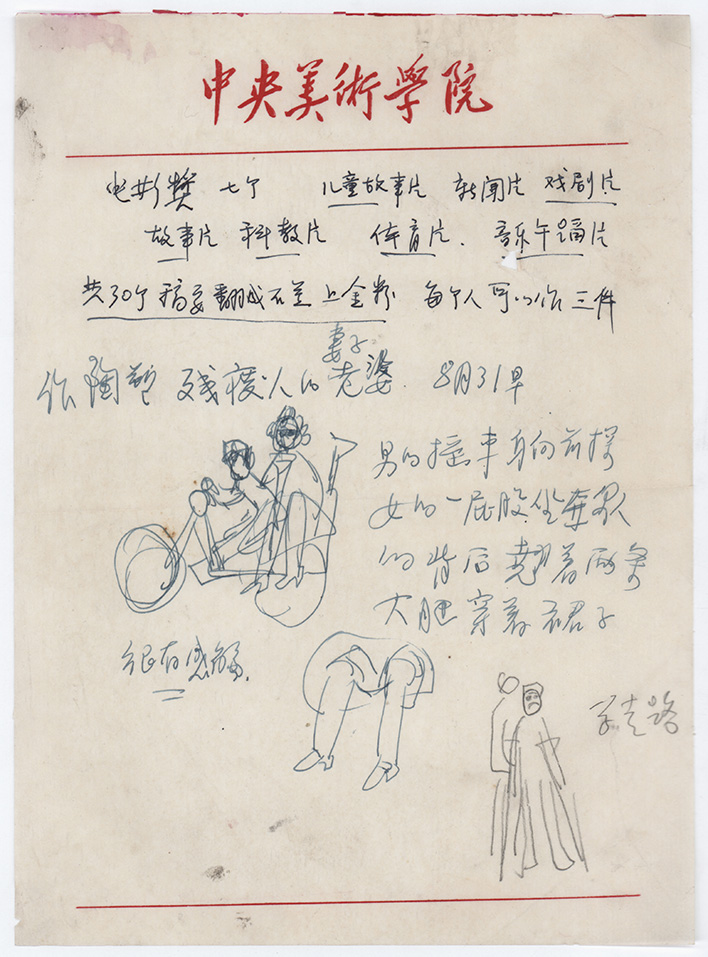 中央美術學院
电影奖 七个 儿童故事片 新闻片 戏剧片
故事片 科教片 体育片. 音乐午踊片
共30个 稿要翻成石羔 上金粉 每个人可以作三件
妻子
作陶塑 残废人的老婆 8月31早
男的摇车身向前探
女的一屁股坐在男人
的背后翘着两条
大腿穿着裙子
很有感触
走路